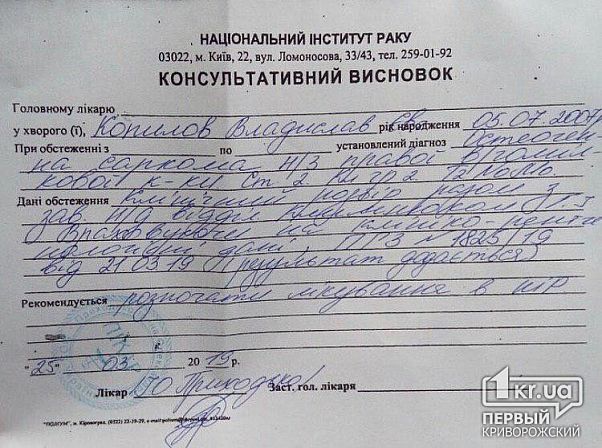 НАЦІОНАЛЬНИЙ ІНСТИТУТ РАКУ
03022, м. Київ, 22, вул. Ломоносова, 33/43, тел. 259-01-92
КОНСУЛЬТАТИВНИЙ ВИСНОВОК
Головному лікарю
у хворого (ї), Копилов Владислав рік народження 05.07.2007
При обстеженні з по установлений діагноз Остеоген
на саркома Н/З правої
кової к-ки Ст. 2
Дані обстеження Клінічний розбір разом з
зав.
Враховуючи на клініко-рентге
дані, ПГЗ № 1825/19
від 21.03.19 (результат додається)
Рекомендується розпочати лікування в
"25" 03 2019 р.
Лікар Ю Приходько Заст. гол. лікаря
"ПОЛІУМ", м. Кіровоград, (0522) 22-19-29,
1kr.ua
ПЕРВЫЙ
КРИВОРОЖСКИЙ